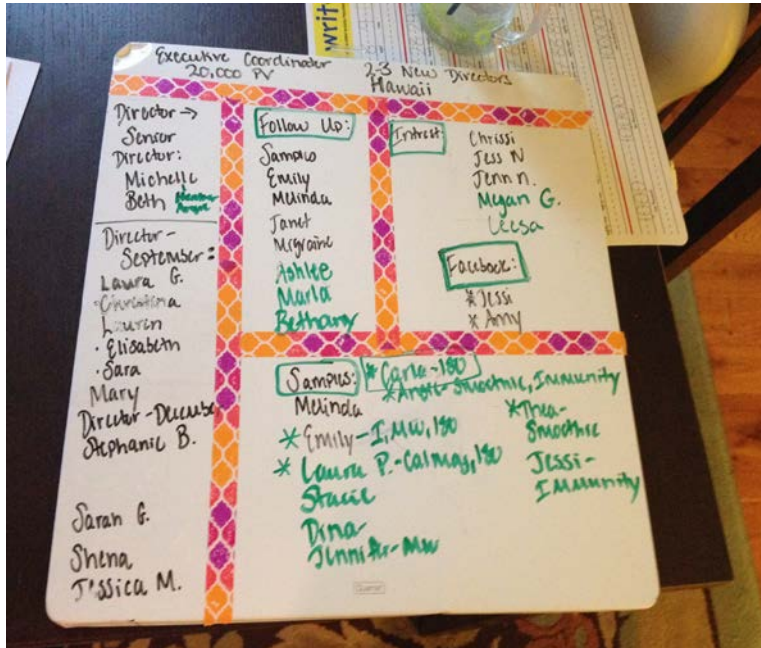 writ
Executive Coordinator
20,000 PV
2-3 New Directors
Hawaii
Director →
Senior
Director:
Michelle
Beth
Director -
September:
Laura G.
Christina
Lauren
· Elisabeth
· Sara
Mary
Director - Decembe
Stephanie B.
Sarah G.
Shena
Jessica M.
Follow Up:
Samples
Emily
Melinda
Janet
Migraine
Ashlee
Marla
Bethany
Intrest:
Chrissi
Jess N
Jenn n.
Megan G.
Leesa
Facebook:
* Jessi
* Amy
Samples:
Melinda
* Emily - I, MW, 180
* Laura P. - Calmag, 180
Stacie
Dina -
Jennifer - MW
* Carla - 180
Smoothie, Immunity
* Thea -
Smoothie
Jessi -
Immunity